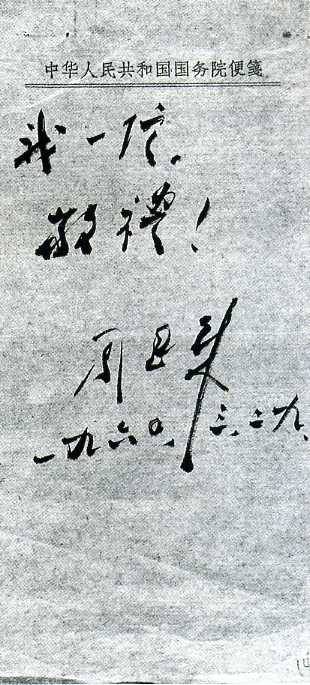 中华人民共和国国务院便笺
我一信。
敬礼！
周恩来
一九六〇、三、二九、